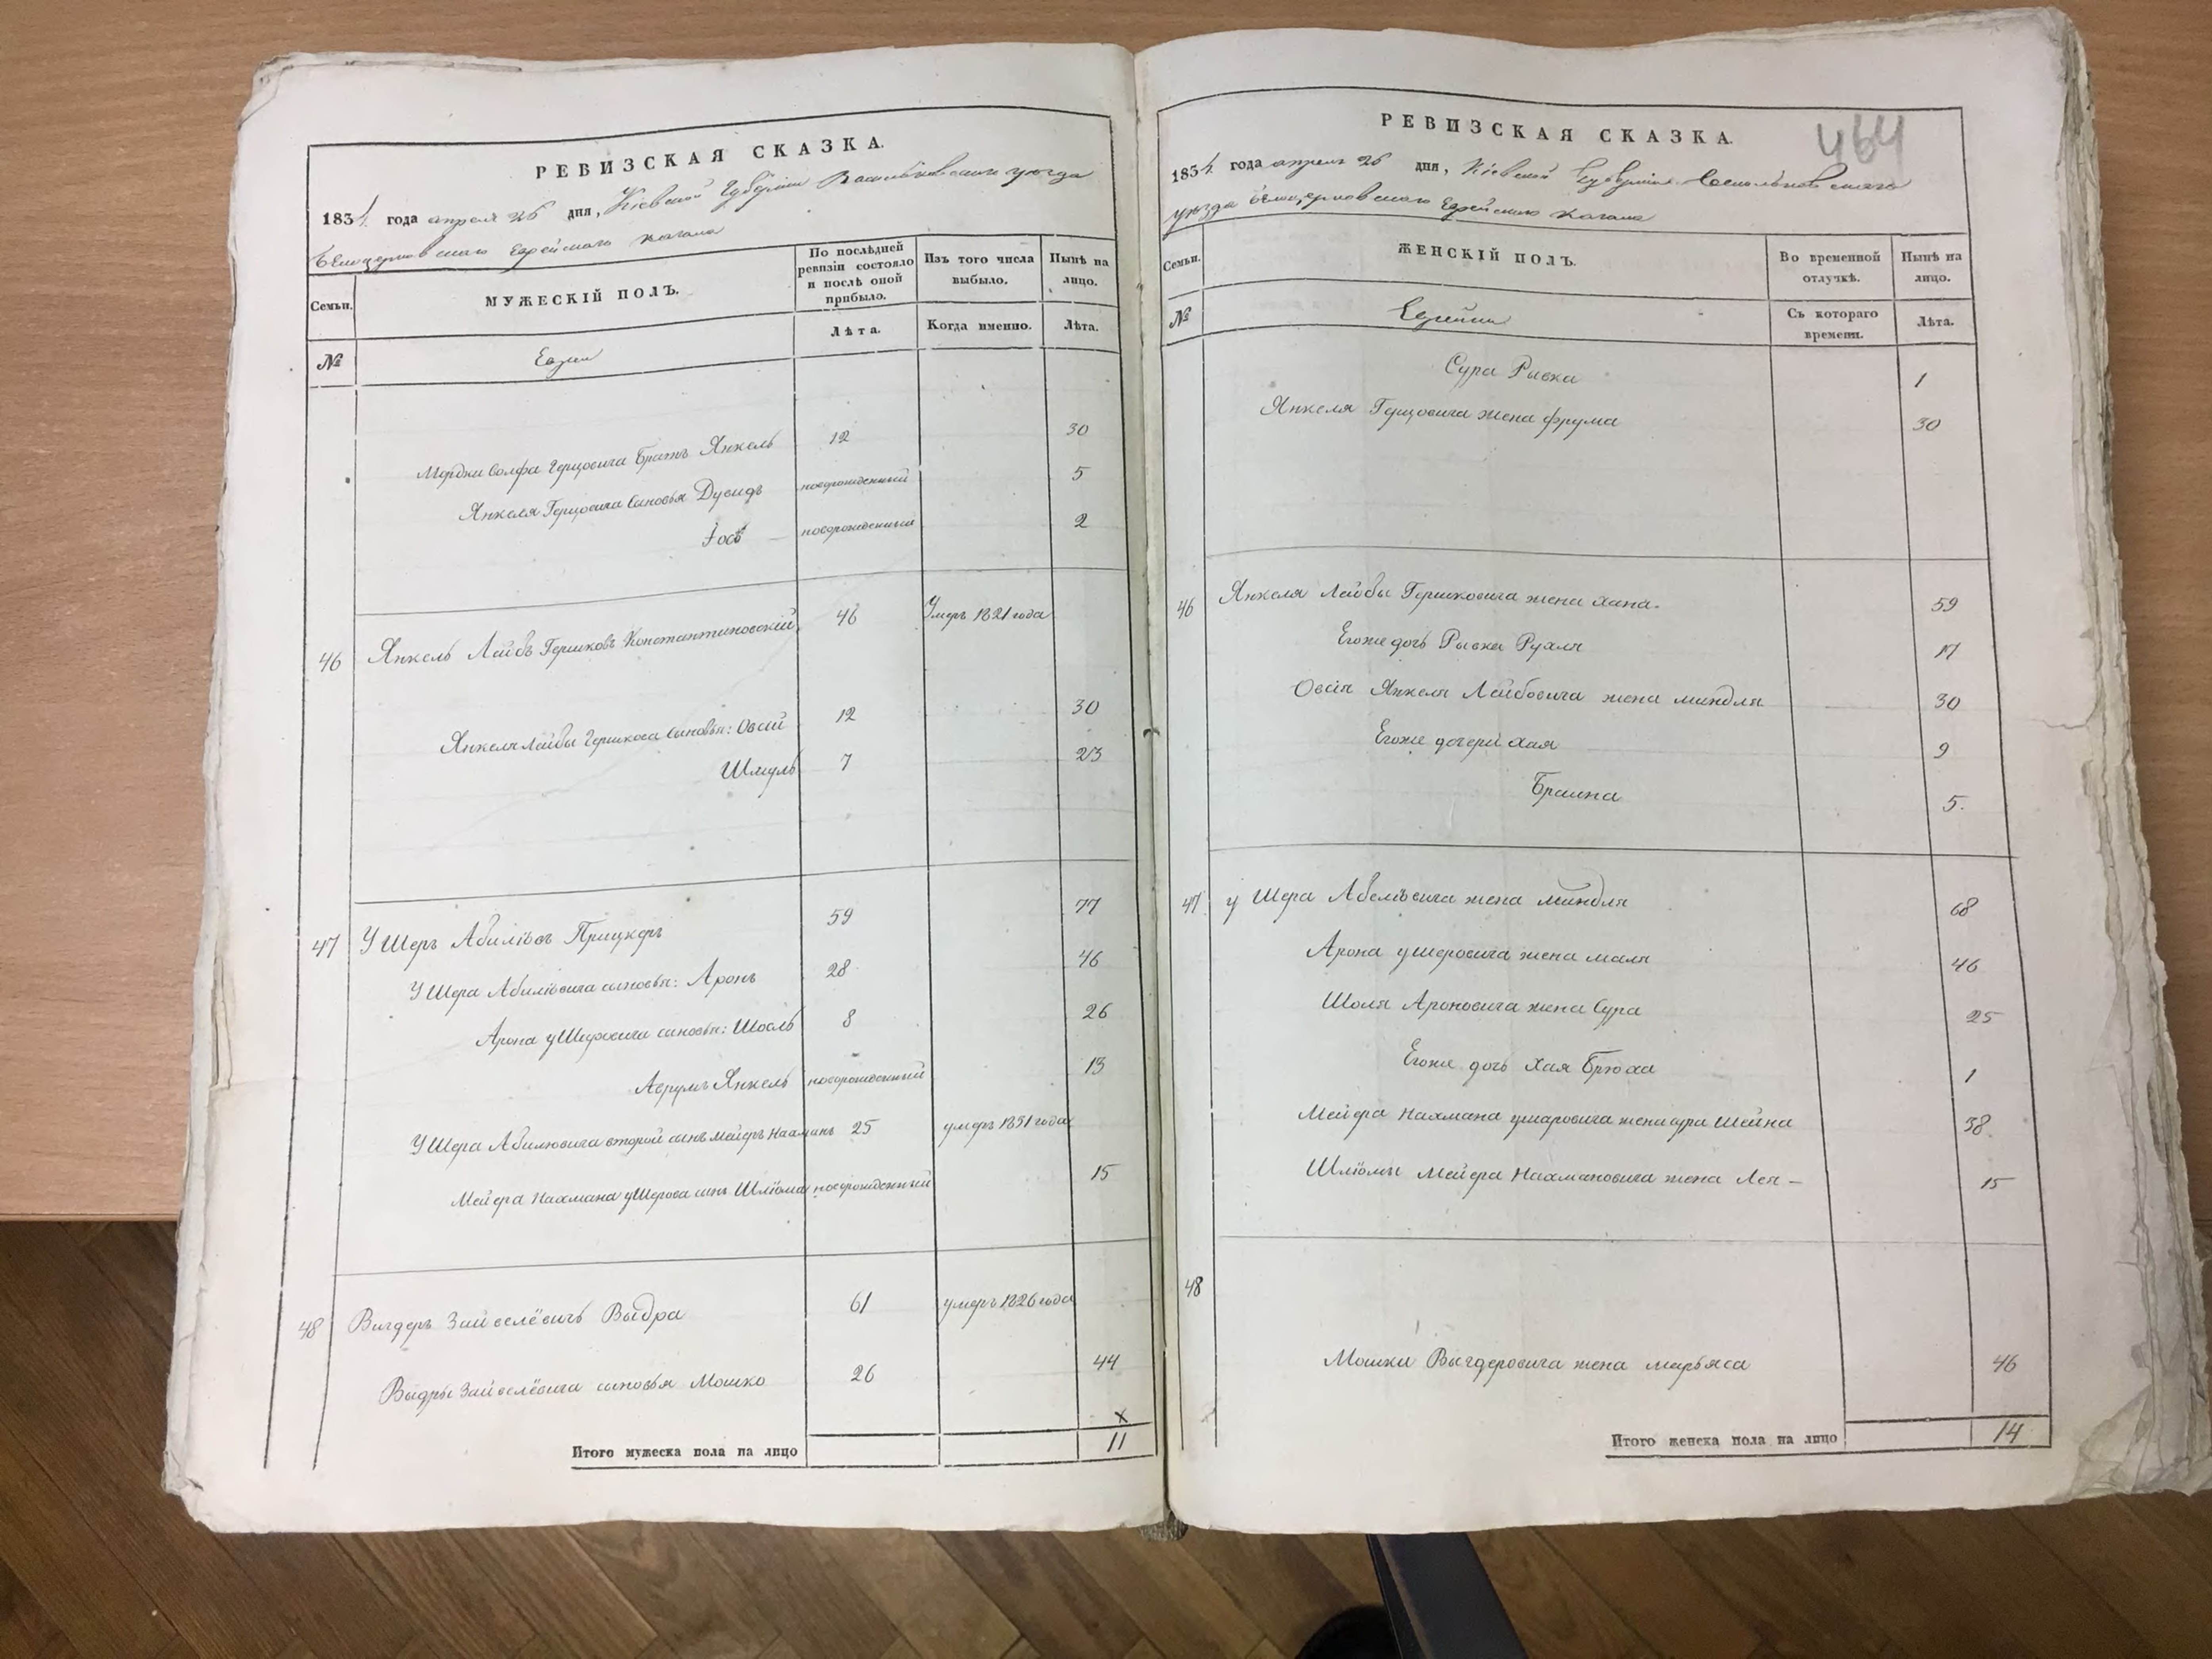 РЕВИЗСКАЯ СКАЗКА.
1834 года апреля 26 дня, Кіевской Губерніи Васильковского уезда
Белоцерковского Еврейского Кагала
Семьи.
МУЖЕСКІЙ ПОЛЪ.
По послѣдней ревизіи состояло и послѣ оной прибыло.
Изъ того числа выбыло.
Нынѣ на лицо.
№
Лѣта.
Когда именно.
Лѣта.
Евреи
Мордки Волфа Герцовича братъ Янкель 12 30
Янкеля Герцовича сыновья Дувидъ новорожденный 5
Іось новорожденный 2
46 Янкель Лейбъ Гершковъ Константиновскій 46 Умеръ 1821 года
Янкеля Лейбы Гершкова сыновья: Овсій 12 30
Шмуль 7 23
47 УШеръ Абиліовъ Прицкеръ 59 77
УШера Абиліовича сыновья: Аронъ 28 46
Арона уШеровича сыновья: Шоель 8 26
Аврумъ Янкель новорожденный 13
УШера Абилювича второй сынъ мейеръ Нахманъ 25 умеръ 1831 года
Мейера Нахмана уШерова сынъ Шліома новорожденный 15
48 Вигдеръ Зайвелёвичъ Выдра 61 умеръ 1826 года
Выдры Зайвелёвича сыновья Мошко 26 44
х
Итого мужеска пола на лицо 11
464
РЕВИЗСКАЯ СКАЗКА.
1834 года апреля 26 дня, Кіевской Губерніи Васильковского
уезда Белоцерковского Еврейского Кагала
Семьи.
ЖЕНСКІЙ ПОЛЪ.
Во временной отлучкѣ.
Нынѣ на лицо.
№
Съ котораго времени.
Лѣта.
Еврейки
Сура Ривка 1
Янкеля Герцовича жена фрума 30
46 Янкеля Лейбы Гершковича жена хана. 59
Егоже дочь Рывка Рухля 17
Овсія Янкеля Лейбовича жена миндля 30
Егоже дочери хая 9
Браина 5.
47 у Шера Абелъевича жена миндля 68
Арона ушеровича жена маля 46
Шоля Ароновича жена Сура 25
Егоже дочь хая Брюха 1
Мейера Нахмана ушаровича жена сура Шейна 38
Шліомы Мейера Нахмановича жена Лея - 15
48
Мошки Выгдеровича жена марьяса 46
Итого женска пола на лицо 14